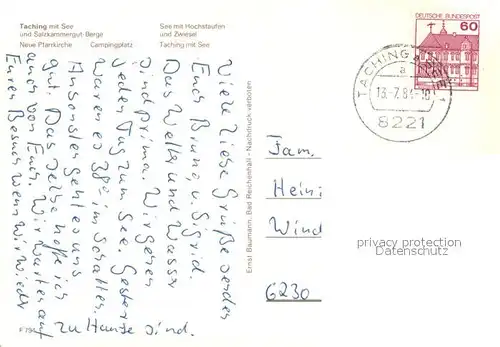 Taching mit See
und Salzkammergut-Berge
Neue Pfarrkirche Campingplatz
See mit Hochstaufen
und Zwiesel
Taching mit See
Viele liebe Grüße senden
Euch Bruno u. Sigrid.
Das Wetter und Wasser
sind prima. Wir gehen
jeden Tag zum See. Gestern
waren es 38° im Schatten.
Ansonsten geht es uns
gut. Das selbe hoffe ich
auch von Euch. Wir warten auf
Euren Besuch wenn wir wieder
zu Hause sind.
Ernst Baumann, Bad Reichenhall - Nachdruck verboten
DEUTSCHE BUNDESPOST
60
TACHING a. SEE
a
13.-7.83-10
8221
Fam.
Heini
Wind
6230
privacy protection
Datenschutz